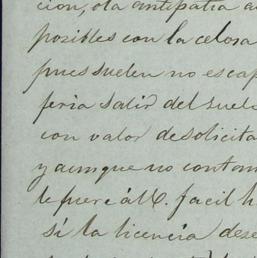 cion, ola antipatia a
posibles con la celosa
pues suelen no escap
feria salir del suel
con valor desolicita
y aunque no contam
le fuere á V. facil h
si la licencia dese